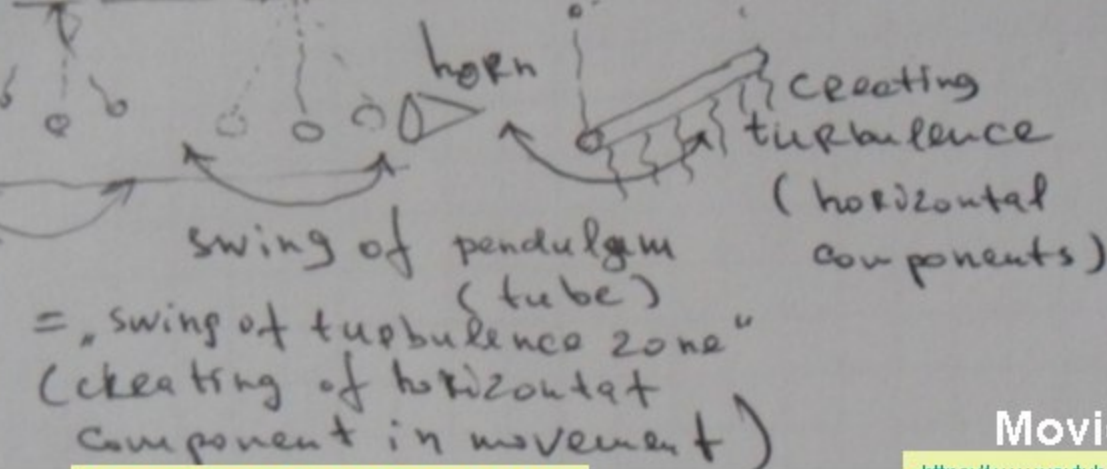 horn
creating
turbulence
(horizontal
components)
swing of pendulum
(tube)
= „swing of turbulence zone"
(creating of horizontal
component in movement)
Movi